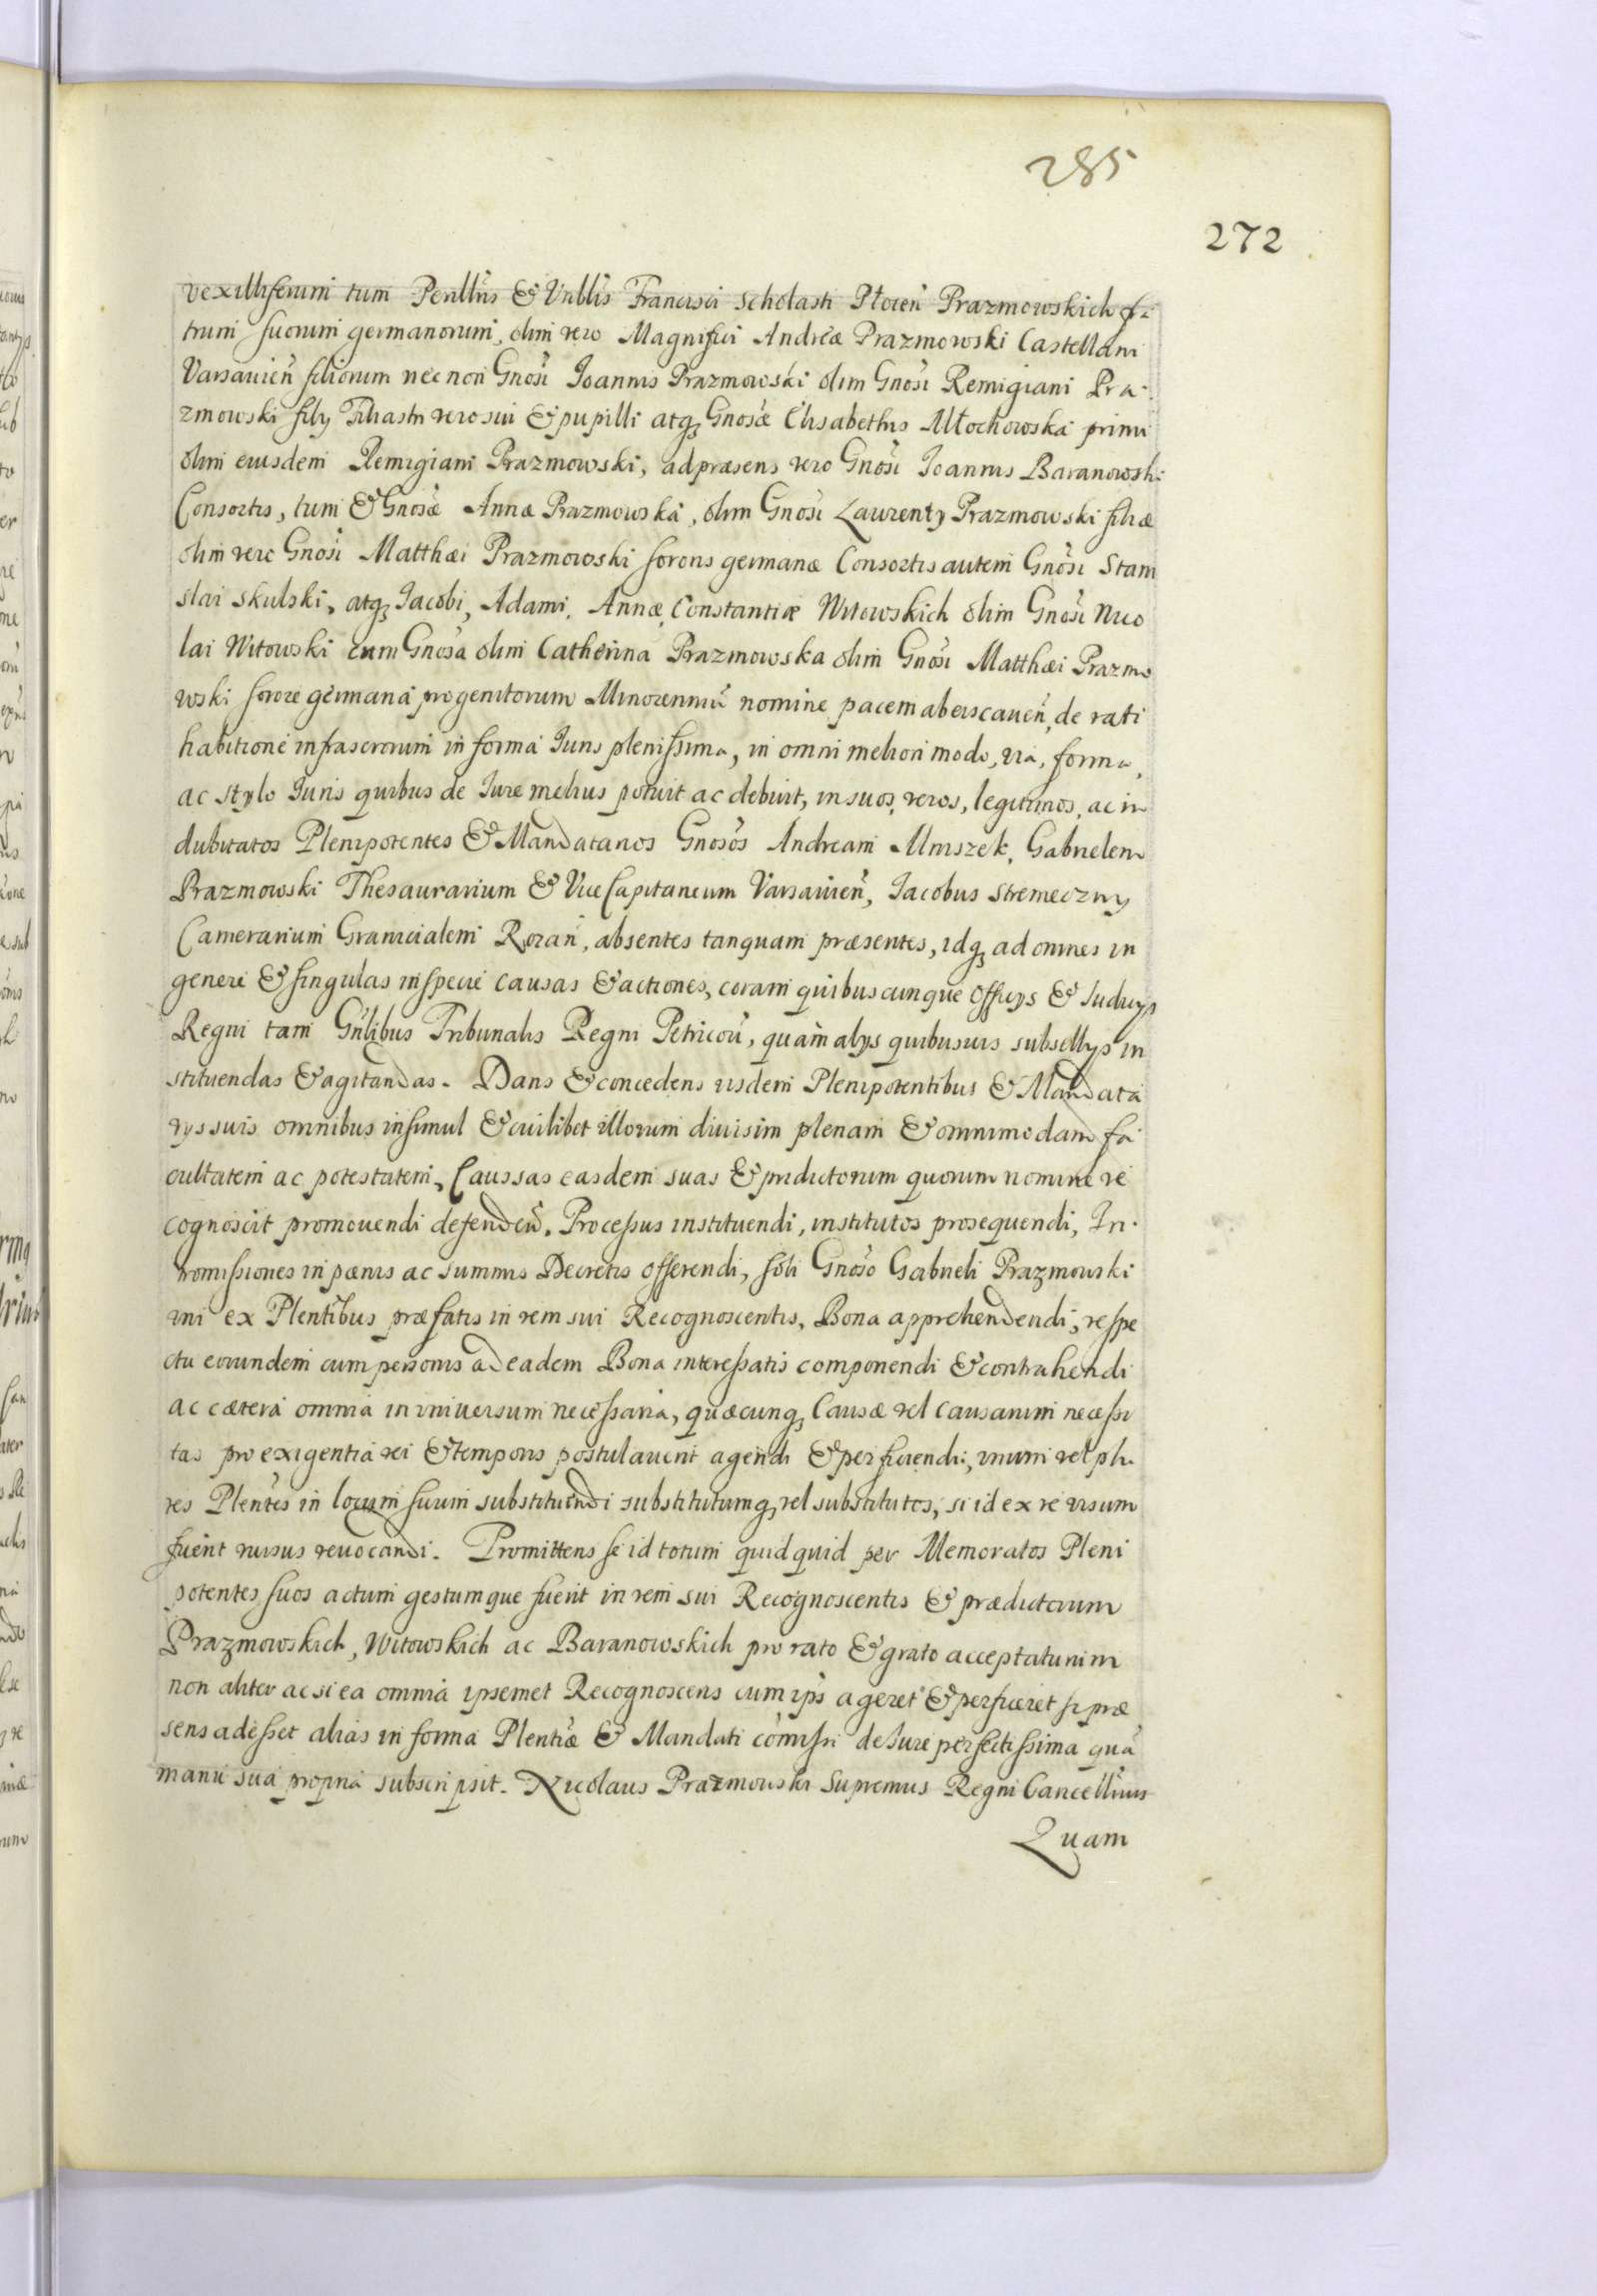 285
272
vexilliferum tum Perillr̃is & Vnbl̃is Francisci Scholasti Płocen̄ Prazmowskich fra
trum suorum germanorum, olim vero Magnifici Andreæ Prazmowski Castellani
Varsavien̄ filiorum nec non Gnos̃i Ioannis Prazmowski olim Gnos̃i Remigiani Pra
zmowski filij Filiastri vero sui & pupilli atq; Gnosæ Elisabethis Młochowska primi
olim eiusdem Remigiani Prazmowski, ad præsens vero Gnos̃i Ioannis Baranowski
Consortis, tum & Gnosæ Annæ Prazmowska, olim Gnos̃i Laurentij Prazmowski filiæ
olim vero Gnos̃i Matthæi Prazmowski sororis germanæ Consortis autem Gnos̃i Stani
slai Skulski, atq; Iacobi, Adami, Annæ, Constantiæ Witowskich olim Gnos̃i Nico
lai Witowski cum Gnosa olim Catherina Prazmowska olim Gnos̃i Matthæi Prazmo
wski sorore germana progenitorum Minorenniū nomine pacem ab eis caven̄, de rati
habitione infrascrorum in forma Iuris plenissima, in omni meliori modo, via, forma,
ac stylo Iuris quibus de Iure melius potuit ac debuit, in suos, veros, legitimos, ac in
dubitatos Plenipotentes & Mandatarios Gnosõs Andream Mniszek, Gabrielem
Prazmowski Thesaurarium & Vice Capitaneum Varsavien̄, Iacobus Stremeczny
Camerarium Granicialem Rozan̄, absentes tanquam præsentes, idq; ad omnes in
genere & singulas in specie causas & actiones, coram quibuscunque Officijs & Iudicijs
Regni tam Gñlibus Tribunalis Regni Petricov̄, quàm alijs quibusvis subsellijs in
stituendas & agitandas. Dans & concedens iisdem Plenipotentibus & Mandata
rijs suis omnibus insimul & cuilibet illorum divisim plenam & omnimodam fa
cultatem ac potestatem, Caussas easdem suas & prædictorum quorum nomine re
cognoscit promovendi defenden̄. Processus instituendi, institutos prosequendi, In
tromissiones in pænis ac summis Decretis offerendi, soli Gnoso Gabrieli Prazmowski
vni ex Plentibus præfatis in rem sui Recognoscentis, Bona apprehendendi, respe
ctu eorundem cum personis ad eadem Bona interessatis componendi & contrahendi
ac cætera omnia in vniversum necessaria, quæcunq; Causæ vel causarum necessi
tas pro exigentia rei & temporis postulaverit agendi & perficiendi, vnum vel plu
res Plen̄tes in locum suum substituendi substitutumq; vel substitutos, si id ex re visum
fuerit rursus revocandi. Promittens se id totum quidquid per Memoratos Pleni
potentes suos actum gestumque fuerit in rem sui Recognoscentis & prædictorum
Prazmowskich, Witowskich ac Baranowskich pro rato & grato acceptaturum
non aliter ac si ea omnia ipsemet Recognoscens cum ip̄s ageret & perficeret si præ
sens adesset alias in forma Plentiæ & Mandati com̄issi de Iure perfectissima quā
manu sua propria subscripsit. Nicolaus Prazmowski Supremus Regni Cancellrius
Quam